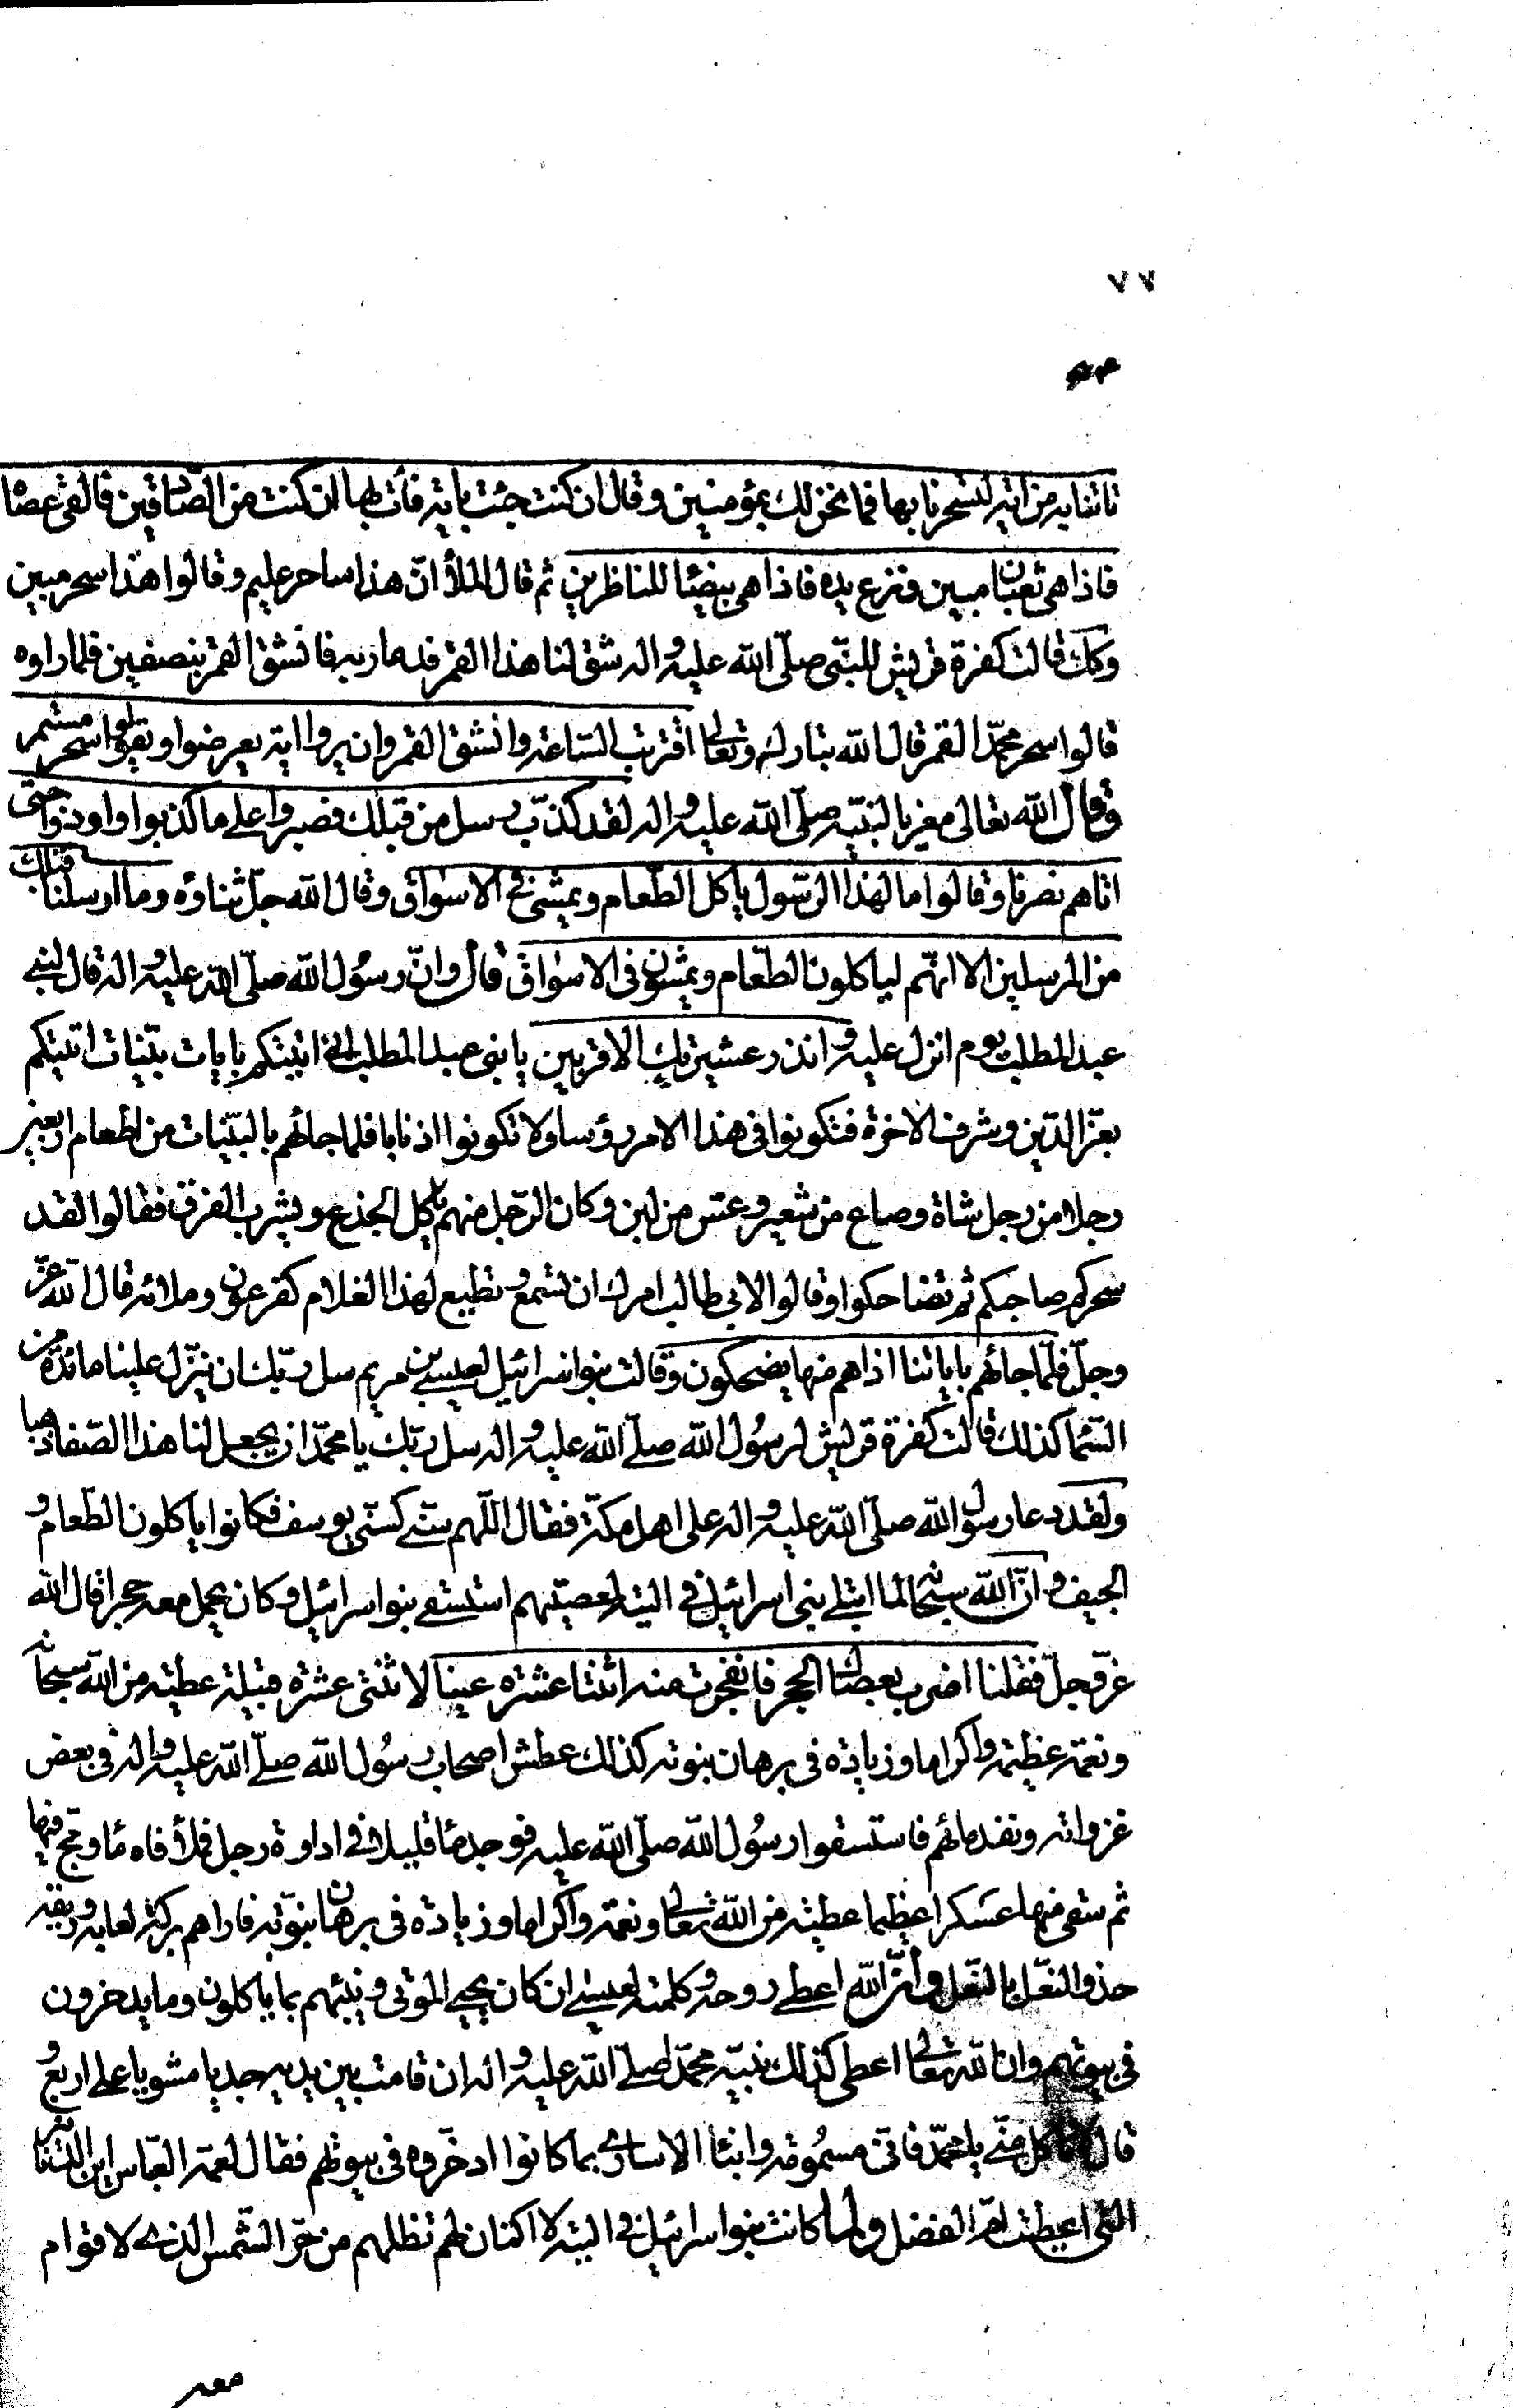 ٧٧
تاتنا به من اية لتسحرنا بها فما نحن لك بمؤمنين وقال ان كنت جئت باية فأت بها ان كنت من الصادقين فالقى عصاه
فاذا هى ثعبان مبين ونزع يده فاذا هى بيضئا للناظرين ثم قال الملأ انّ هذا ساحر عليم وقالوا هذا سحر مبين
وكك قالت كفرة قريش للنبّى صلّى الله عليه واله شق لنا هذا القمر فدعا ربه فانشق القمر بنصفين فلما راوه
قالوا سحر محمّد القمر قال الله تبارك وتعالى اقتربت الساعة وانشق القمر وان يروا اية يعرضوا ويقولوا سحر مستمر
وقال الله تعالى معزيا لنبيّه صلّى الله عليه واله لقد كذّب رسل من قبلك فصبروا على ما كذبوا واوذوا حتى
اتاهم نصرنا وقالوا ما لهذا الرسّول ياكل الطّعام ويمشى فى الاسواق وقال الله جلّ ثناؤه وما ارسلنا قبلك
من المرسلين الا انهّم لياكلون الطّعام ويمشون فى الاسواق قال وانّ رسُول الله صلّى الله عليه واله قال لبنى
عبد المطلب يوم انزل عليه وانذر عشيرتك الاقربين يا بنى عبد المطلب انى اتيتكم بايات بيّنات اتيتكم
بعزّ الدّين وشرف الاخرة فتكونوا فى هذا الامر رؤسا ولا تكونوا اذنابا فلما جائهم بالبيّنات من اطعام اربعين
رجلا من رجل شاة وصاع من شعير وعسّ من لبن وكان الرّجل منهم ياكل الجذع ويشرب الفرق فقالوا لقد
سحركم صاحبكم ثم تضاحكوا وقالوا لابى طالب امرك ان تسمع وتطيع لهذا الغلام كفرعون وملائه قال الله عزّ
وجلّ فلمّا جائهم باياتنا اذا هم منها يضحكون وقالت بنوا سرائيل لعيسى بن مريم سل ربّك ان ينزّل علينا مائدة من
السّما كذلك قالت كفرة قريش لرسُول الله صلّى الله عليه واله سل ربّك يا محمّد ان يجعل لنا هذا الصّفا ذهبا
ولقد دعا رسول الله صلّى الله عليه واله على اهل مكّة فقال اللّهم سنى كسنّى يوسف فكانوا ياكلون الطّعام و
الجيف وانّ الله سبحانه لما ابتلى بنى اسرائيل فى التيه لمعصيتهم استسقى بنوا سرائيل وكان يحمل معه حجرا قال الله
عزّ وجلّ فقلنا اضرب بعصاك الحجر فانفجرت منه اثنتا عشرة عينا لاثنتى عشرة قبيلة عطيّة من الله سبحانه
ونعمة عظيمة واكراما وزيادة فى برهان نبوته كذلك عطش اصحاب رسُول الله صلّى الله عليه واله فى بعض
غزواته ونفد مائهم فاستسقوا رسُول الله صلّى الله عليه فوجد مًا قليلا فى اداوة رجل فملأ فاه مًا ومج فيها
ثم سقى منها عسكرا عظيما عطيّة من الله تعالى ونعمة واكراما وزيادة فى برهان نبوّته فاراهم بركة لعابه وريقه
حذو النعّل بالنعّل وانّ الله اعطى روحه وكلمته لعيسى ان كان يحيى الموتى وينبئهم بما ياكلون وما يدخرون
فى بيوتهم وان الله تعالى اعطى كذلك نبيّه محمّدا صلّى الله عليه واله ان قامت بين يديه جديا مشويا على اربع و
قال لا تاكل منّى يا محمّد فانى مسمُومة وانبئا الاسارى بما كانوا ادخّروه فى بيوتهم فقال لعمّه العبّاس اين الدنانير
التى اعطيت امّ الفضل ولما كانت بنوا سرائيل فى التيه لا اكنان لهم تظلهم من حرّ الشّمس الذى لا قوام
معه